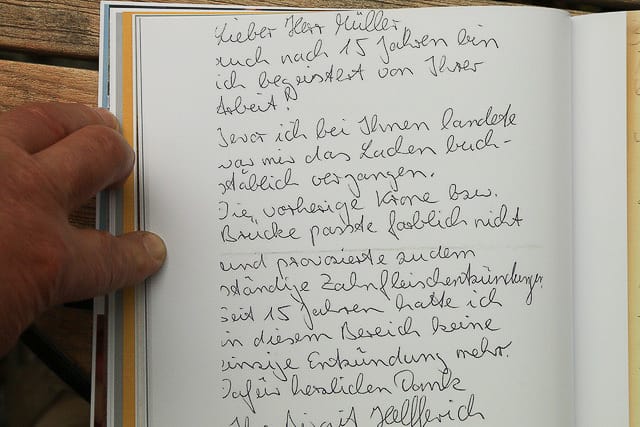 Lieber Herr Müller
auch nach 15 Jahren bin
ich begeistert von Ihrer
Arbeit!
Bevor ich bei Ihnen landete
war mir das Lachen buch-
stäblich vergangen.
Die „vorherige Krone bzw.
Brücke passte farblich nicht
und provozierte zudem
ständige Zahnfleischentzündungen.
Seit 15 Jahren hatte ich
in diesem Bereich keine
einzige Entzündung mehr.
Dafür herzlichen Dank
Ihre Birgit Helfferich